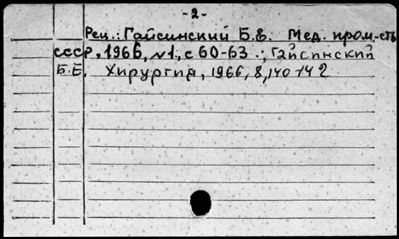 -2-
Рец.: Гайсинский Б.Е. Мед. пром-сть
СССР, 1966, №1, с 60-63.; Гайсинский
Б.Е. Хирургия, 1966, 8, 140-142